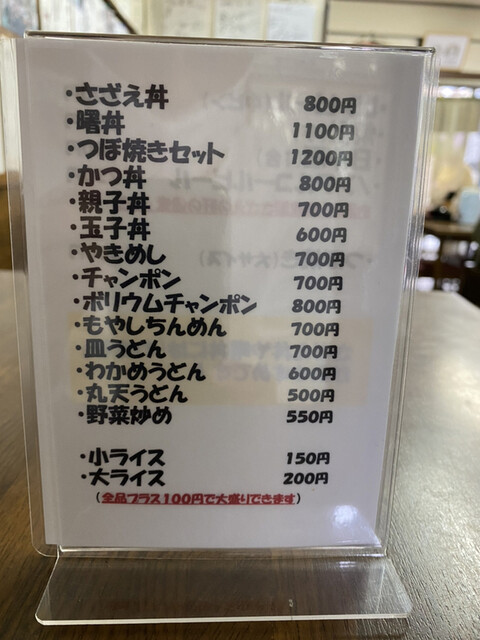 ・さざえ丼 800円
・曙丼 1100円
・つぼ焼きセット 1200円
・かつ丼 800円
・親子丼 700円
・玉子丼 600円
・やきめし 700円
・チャンポン 700円
・ボリウムチャンポン 800円
・もやしちんめん 700円
・皿うどん 700円
・わかめうどん 600円
・丸天うどん 500円
・野菜炒め 550円
・小ライス 150円
・大ライス 200円
(全品プラス100円で大盛りできます)